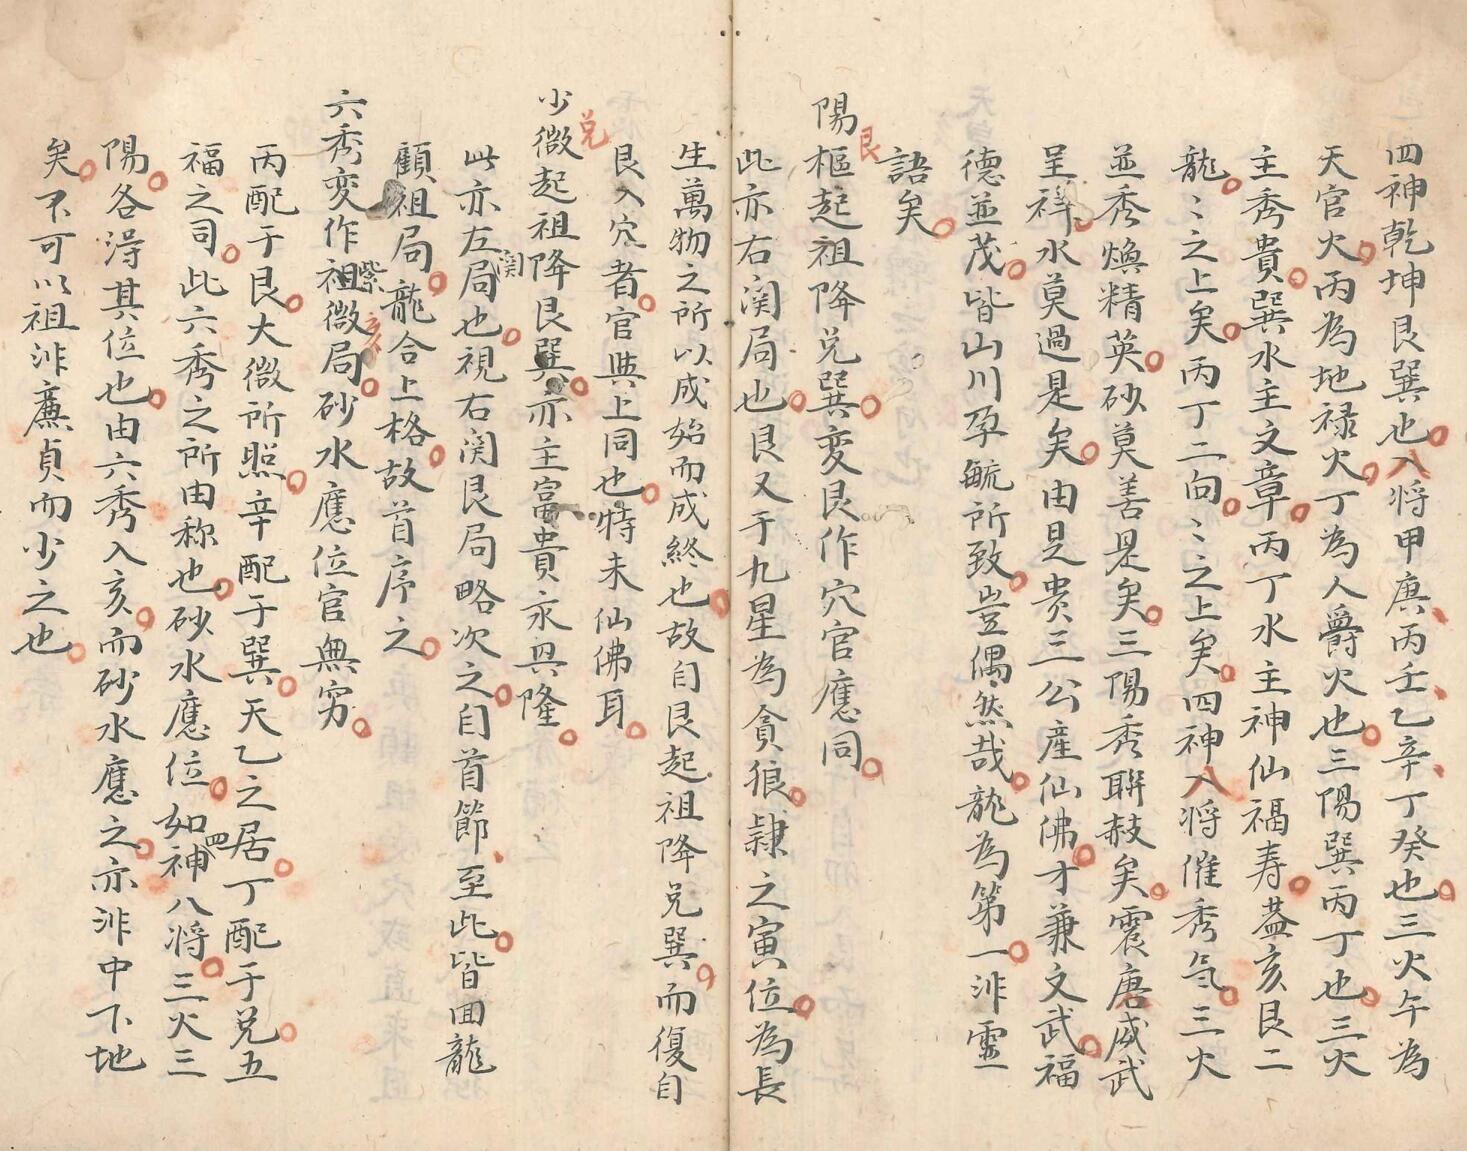 四神乾坤艮巽也八将甲庚丙壬乙辛丁癸也三火午為
天官火丙為地禄火丁為人爵火也三陽巽丙丁也三火
主秀貴巽水主文章丙丁水主神仙福寿葢亥艮二
龍〻之上矣丙丁二向〻之上矣四神八将催秀气三火
並秀煥精英砂莫善是矣三陽秀聨㪽矣震庚威武
呈祥水莫過是矣由是贵三公産仙佛才兼文武福
德並茂皆山川孕毓所致豈偶然哉龍為第一非靈
語矣
陽樞起祖降兑巽変艮作穴官應同
艮
此亦右関局也艮又于九星為貪狼隷之寅位為長
生萬物之所以成始而成終也故自艮起祖降兑巽而復自
艮入穴者官與上同也特未仙佛耳
少微起祖降艮巽亦主富貴永興隆
兑
此亦左関局也視右関艮局略次之自首節至此皆囬龍
顧祖局龍合上格故首序之
六秀変作祖微局砂水應位官無穷
紫亥
丙配于艮大微所照辛配于巽天乙之居丁配于兑五
福之司此六秀之所由称也砂水應位如四神八将三火三
陽各淂其位也由六秀入亥而砂水應之亦非中下地
矣不可以祖非廉貞而少之也